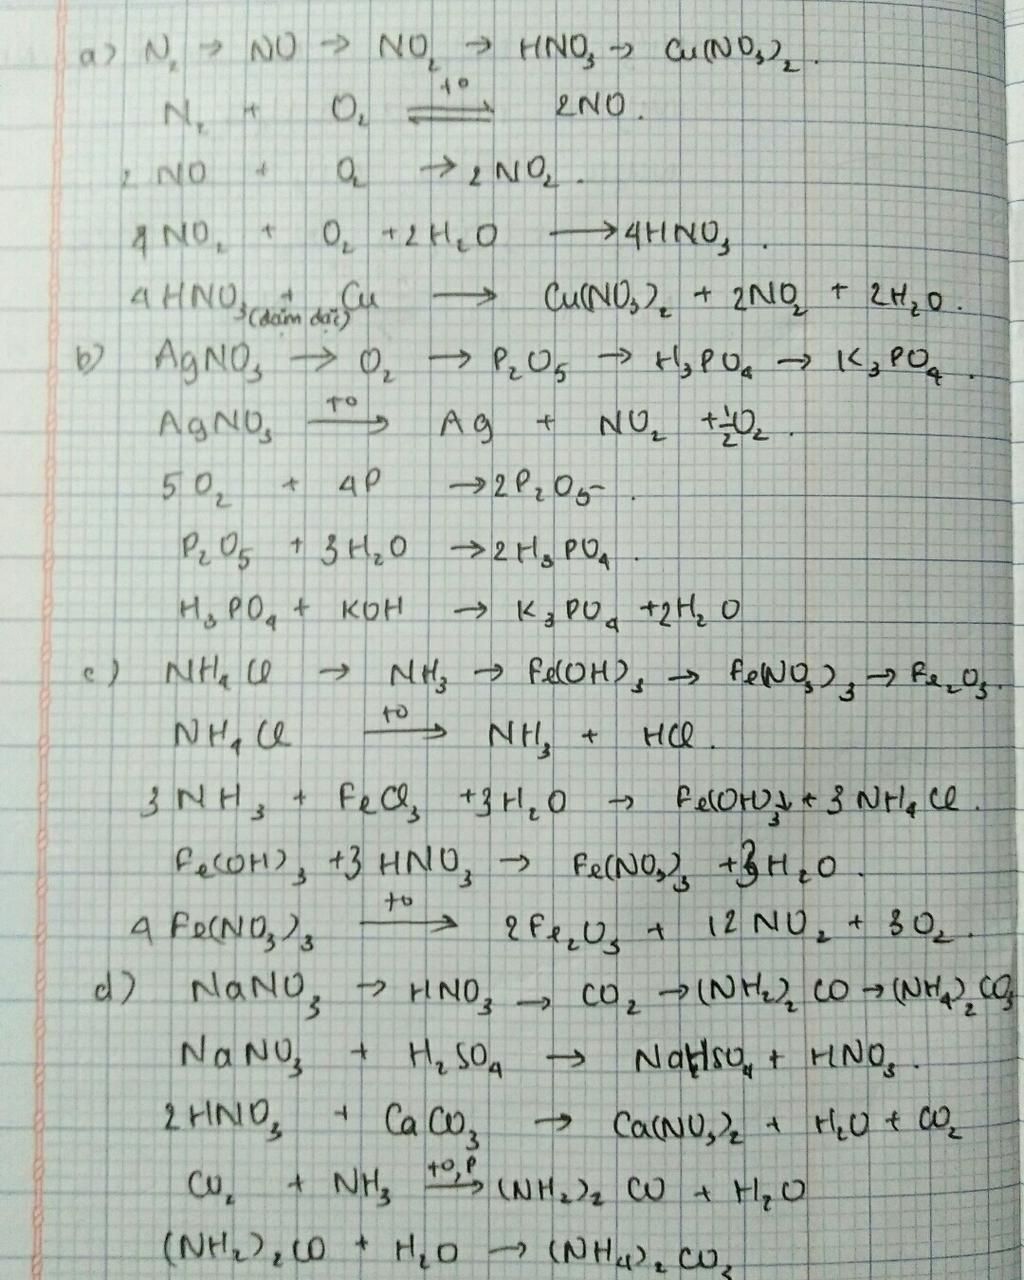 a) N₂ → NO → NO₂ → HNO₃ → Cu(NO₃)₂.
N₂ + O₂ ⇌(t⁰) 2NO.
2 NO + O₂ → 2 NO₂.
4 NO₂ + O₂ + 2H₂O → 4HNO₃.
4 HNO₃ (đậm đặc) + Cu → Cu(NO₃)₂ + 2NO₂ + 2H₂O.
b) AgNO₃ → O₂ → P₂O₅ → H₃PO₄ → K₃PO₄.
AgNO₃ →(t⁰) Ag + NO₂ + ½O₂.
5 O₂ + 4P → 2P₂O₅.
P₂O₅ + 3H₂O → 2H₃PO₄.
H₃PO₄ + KOH → K₃PO₄ + 2H₂O
c) NH₄Cl → NH₃ → Fe(OH)₃ → Fe(NO₃)₃ → Fe₂O₃.
NH₄Cl →(t⁰) NH₃ + HCl.
3 NH₃ + FeCl₃ + 3H₂O → Fe(OH)₃↓ + 3 NH₄Cl.
Fe(OH)₃ + 3 HNO₃ → Fe(NO₃)₃ + 3H₂O.
4 Fe(NO₃)₃ →(t⁰) 2Fe₂O₃ + 12 NO₂ + 3O₂.
d) NaNO₃ → HNO₃ → CO₂ → (NH₂)₂CO → (NH₄)₂CO₃
NaNO₃ + H₂SO₄ → NaHSO₄ + HNO₃.
2HNO₃ + CaCO₃ → Ca(NO₃)₂ + H₂O + CO₂
CO₂ + NH₃ →(t⁰,P) (NH₂)₂CO + H₂O
(NH₂)₂CO + H₂O → (NH₄)₂CO₃